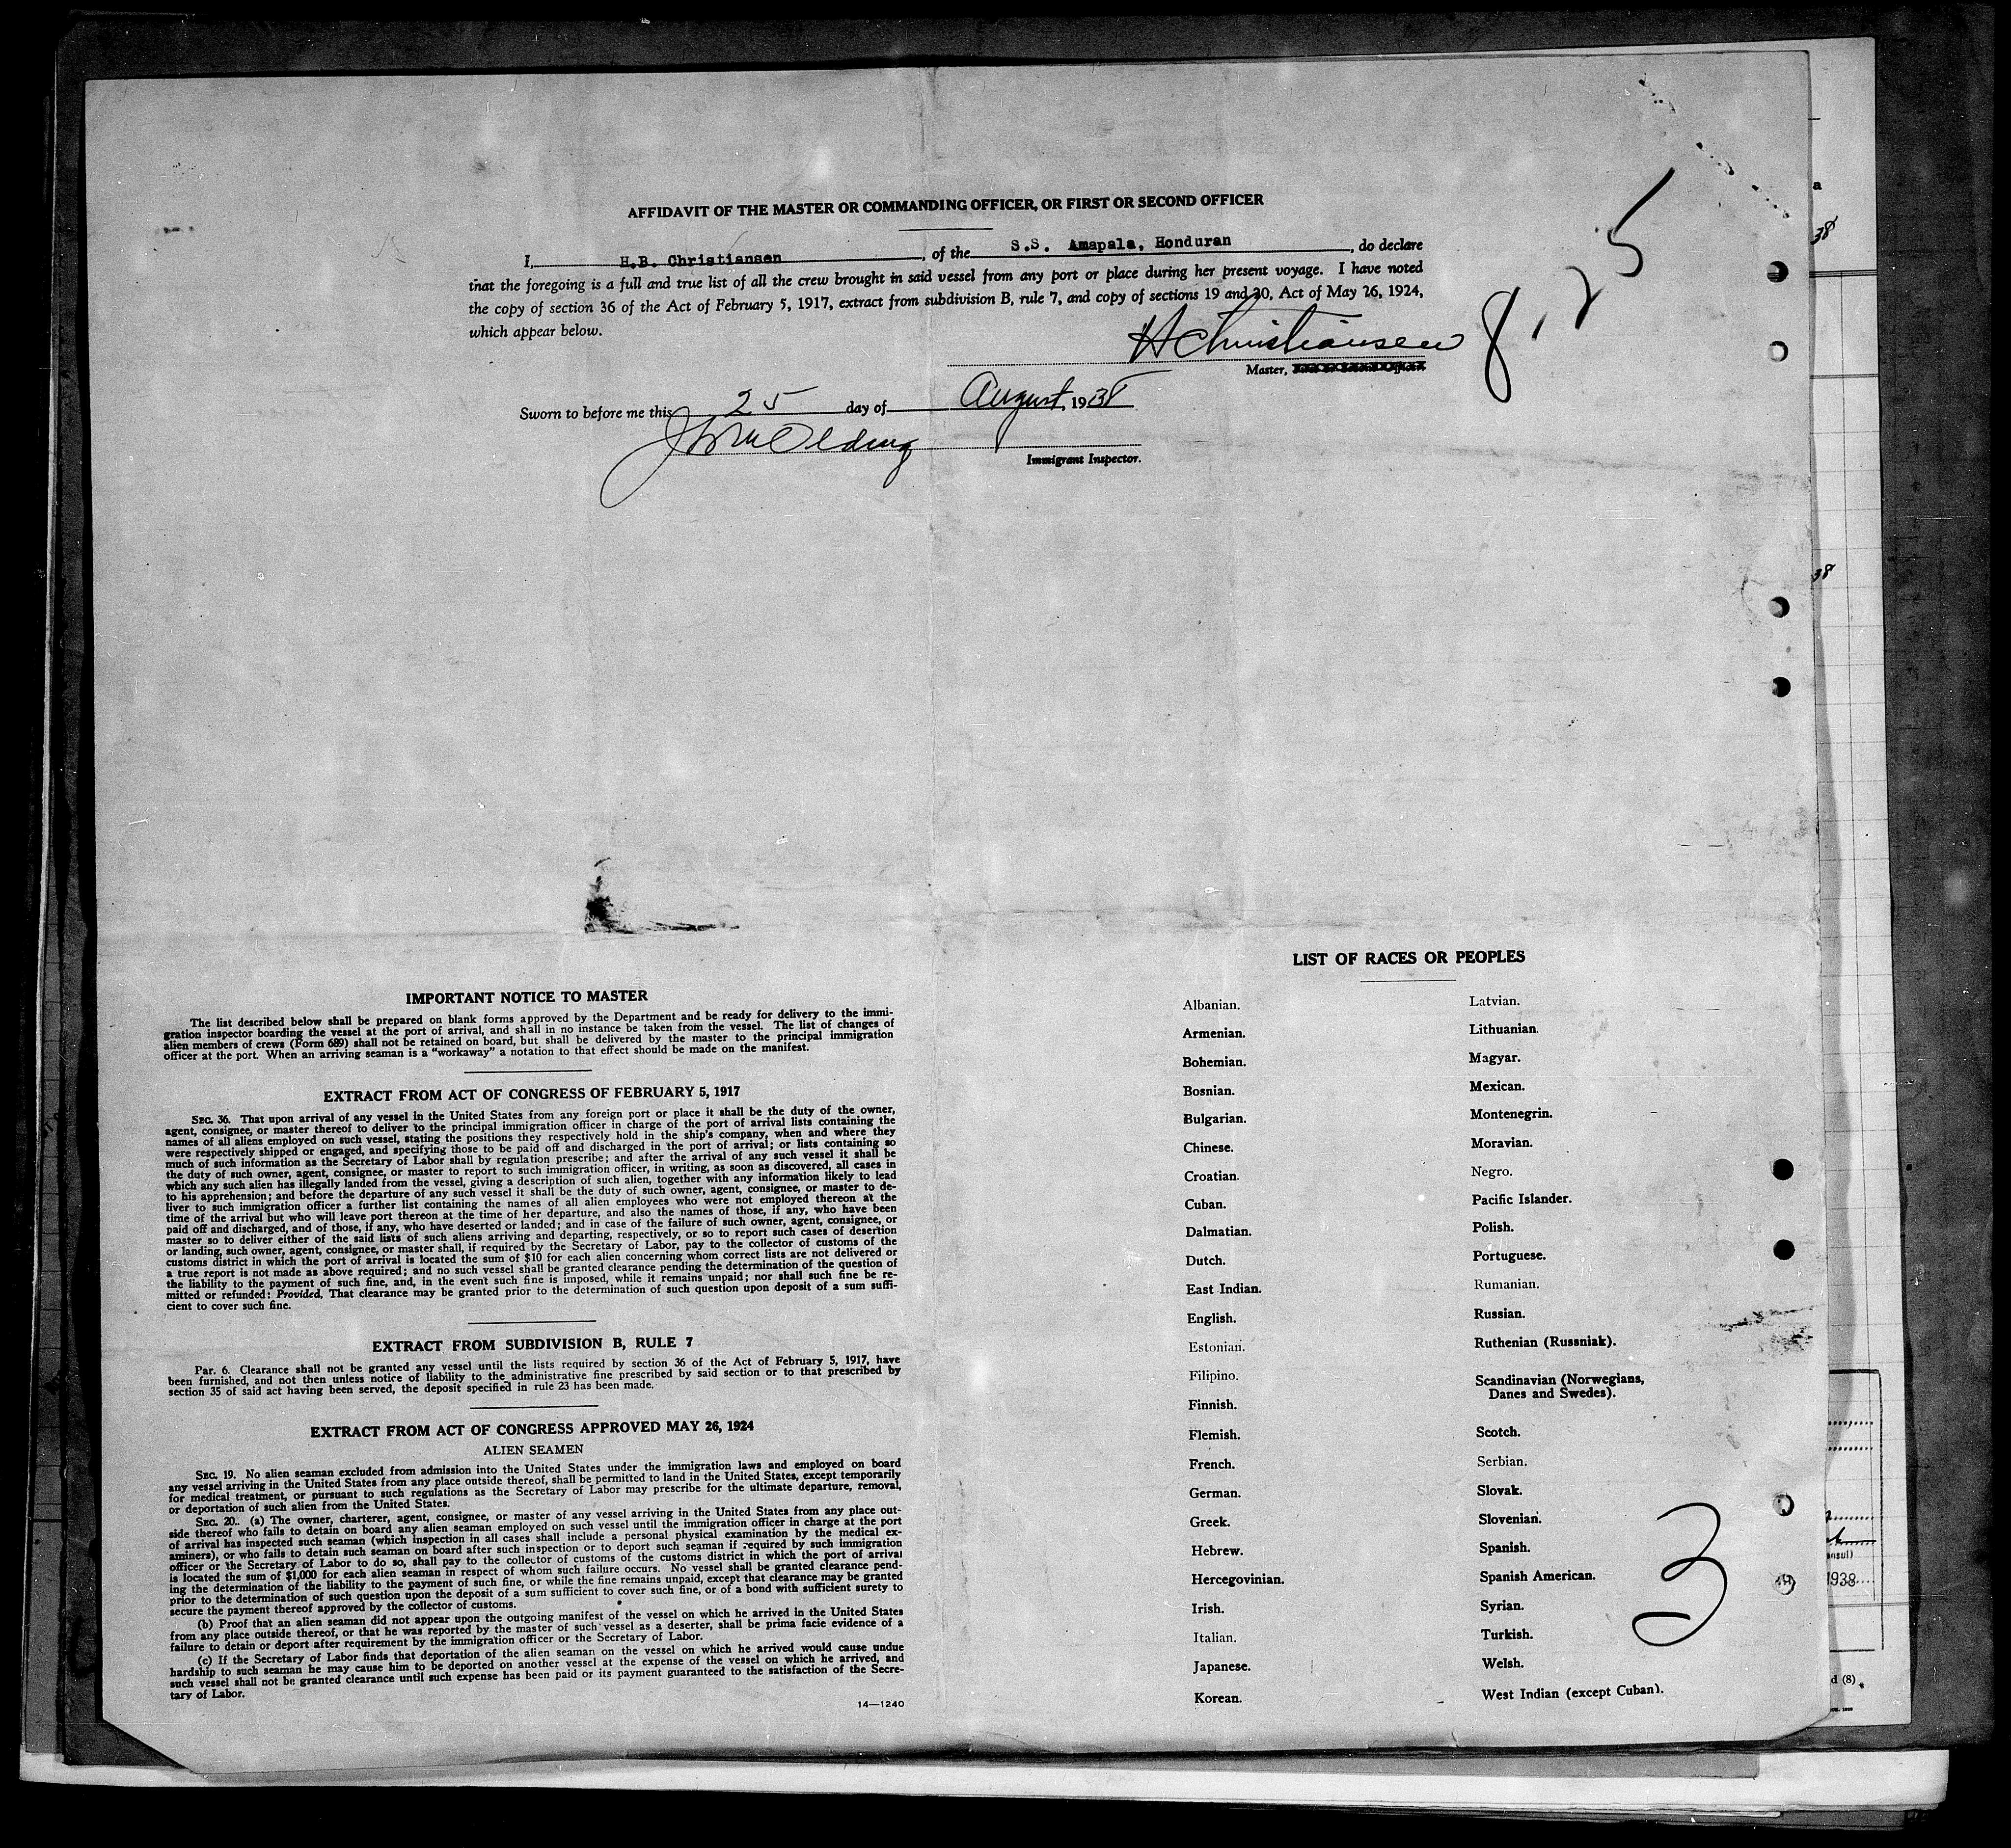 AFFIDAVIT OF THE MASTER OR COMMANDING OFFICER, OR FIRST OR SECOND OFFICER
I, H.B. Christiansen, of the S.S. Amapala, Honduran, do declare
that the foregoing is a full and true list of all the crew brought in said vessel from any port or place during her present voyage. I have noted
the copy of section 36 of the Act of February 5, 1917, extract from subdivision B, rule 7, and copy of sections 19 and 20, Act of May 26, 1924,
which appear below.
HChristiansen
8, 25
Master,
Sworn to before me this 25 day of August, 1938
Immigrant Inspector.
IMPORTANT NOTICE TO MASTER
The list described below shall be prepared on blank forms approved by the Department and be ready for delivery to the immi-
gration inspector boarding the vessel at the port of arrival, and shall in no instance be taken from the vessel. The list of changes of
alien members of crews (Form 689) shall not be retained on board, but shall be delivered by the master to the principal immigration
officer at the port. When an arriving seaman is a "workaway" a notation to that effect should be made on the manifest.
EXTRACT FROM ACT OF CONGRESS OF FEBRUARY 5, 1917
SEC. 36. That upon arrival of any vessel in the United States from any foreign port or place it shall be the duty of the owner,
agent, consignee, or master thereof to deliver to the principal immigration officer in charge of the port of arrival lists containing the
names of all aliens employed on such vessel, stating the positions they respectively hold in the ship's company, when and where they
were respectively shipped or engaged, and specifying those to be paid off and discharged in the port of arrival; or lists containing so
much of such information as the Secretary of Labor shall by regulation prescribe; and after the arrival of any such vessel it shall be
the duty of such owner, agent, consignee, or master to report to such immigration officer, in writing, as soon as discovered, all cases in
which any such alien has illegally landed from the vessel, giving a description of such alien, together with any information likely to lead
to his apprehension; and before the departure of any such vessel it shall be the duty of such owner, agent, consignee, or master to de-
liver to such immigration officer a further list containing the names of all alien employees who were not employed thereon at the
time of the arrival but who will leave port thereon at the time of her departure, and also the names of those, if any, who have been
paid off and discharged, and of those, if any, who have deserted or landed; and in case of the failure of such owner, agent, consignee, or
master so to deliver either of the said lists of such aliens arriving and departing, respectively, or so to report such cases of desertion
or landing, such owner, agent, consignee, or master shall, if required by the Secretary of Labor, pay to the collector of customs of the
customs district in which the port of arrival is located the sum of $10 for each alien concerning whom correct lists are not delivered or
a true report is not made as above required; and no such vessel shall be granted clearance pending the determination of the question of
the liability to the payment of such fine, and, in the event such fine is imposed, while it remains unpaid; nor shall such fine be re-
mitted or refunded: Provided, That clearance may be granted prior to the determination of such question upon deposit of a sum suffi-
cient to cover such fine.
EXTRACT FROM SUBDIVISION B, RULE 7
Par. 6. Clearance shall not be granted any vessel until the lists required by section 36 of the Act of February 5, 1917, have
been furnished, and not then unless notice of liability to the administrative fine prescribed by said section or to that prescribed by
section 35 of said act having been served, the deposit specified in rule 23 has been made.
EXTRACT FROM ACT OF CONGRESS APPROVED MAY 26, 1924
ALIEN SEAMEN
SEC. 19. No alien seaman excluded from admission into the United States under the immigration laws and employed on board
any vessel arriving in the United States from any place outside thereof, shall be permitted to land in the United States, except temporarily
for medical treatment, or pursuant to such regulations as the Secretary of Labor may prescribe for the ultimate departure, removal,
or deportation of such alien from the United States.
SEC. 20. (a) The owner, charterer, agent, consignee, or master of any vessel arriving in the United States from any place out-
side thereof who fails to detain on board any alien seaman employed on such vessel until the immigration officer in charge at the port
of arrival has inspected such seaman (which inspection in all cases shall include a personal physical examination by the medical ex-
aminers), or who fails to detain such seaman on board after such inspection or to deport such seaman if required by such immigration
officer or the Secretary of Labor to do so, shall pay to the collector of customs of the customs district in which the port of arrival
is located the sum of $1,000 for each alien seaman in respect of whom such failure occurs. No vessel shall be granted clearance pend-
ing the determination of the liability to the payment of such fine, or while the fine remains unpaid, except that clearance may be granted
prior to the determination of such question upon the deposit of a sum sufficient to cover such fine, or of a bond with sufficient surety to
secure the payment thereof approved by the collector of customs.
(b) Proof that an alien seaman did not appear upon the outgoing manifest of the vessel on which he arrived in the United States
from any place outside thereof, or that he was reported by the master of such vessel as a deserter, shall be prima facie evidence of a
failure to detain or deport after requirement by the immigration officer or the Secretary of Labor.
(c) If the Secretary of Labor finds that deportation of the alien seaman on the vessel on which he arrived would cause undue
hardship to such seaman he may cause him to be deported on another vessel at the expense of the vessel on which he arrived, and
such vessel shall not be granted clearance until such expense has been paid or its payment guaranteed to the satisfaction of the Secre-
tary of Labor.
14—1240
LIST OF RACES OR PEOPLES
Albanian.
Armenian.
Bohemian.
Bosnian.
Bulgarian.
Chinese.
Croatian.
Cuban.
Dalmatian.
Dutch.
East Indian.
English.
Estonian.
Filipino.
Finnish.
Flemish.
French.
German.
Greek.
Hebrew.
Hercegovinian.
Irish.
Italian.
Japanese.
Korean.
Latvian.
Lithuanian.
Magyar.
Mexican.
Montenegrin.
Moravian.
Negro.
Pacific Islander.
Polish.
Portuguese.
Rumanian.
Russian.
Ruthenian (Russniak).
Scandinavian (Norwegians,
Danes and Swedes).
Scotch.
Serbian.
Slovak.
Slovenian.
Spanish.
Spanish American.
Syrian.
Turkish.
Welsh.
West Indian (except Cuban).
3
a
38
38
nsul)
1938
d (8)